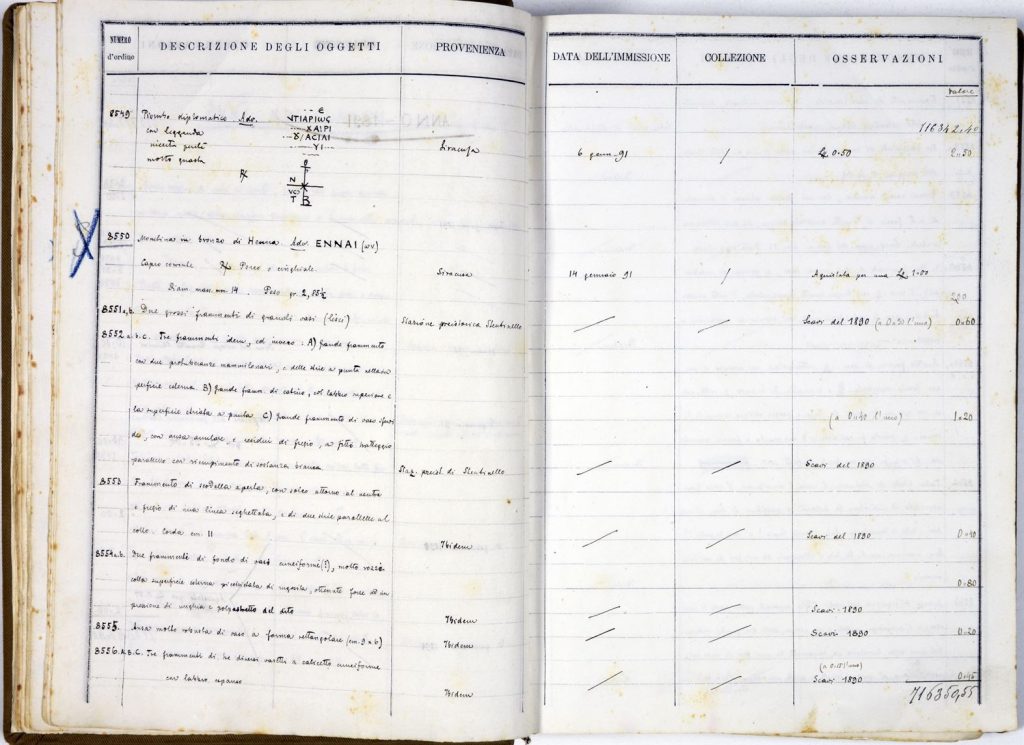 NUMERO d'ordine
DESCRIZIONE DEGLI OGGETTI
PROVENIENZA
DATA DELL'IMMISSIONE
COLLEZIONE
OSSERVAZIONI
Valore
116342.40
8549 Piombo diplomatico Adv.
con leggenda
molto guasta
Є
ΝΤΙΑΡΙωϹ
ΧΑΙΡΙ
ΥΙ
N
T B
Siracusa
6 genn. 91 / £ 0.50
8550 Monetina in bronzo di Henna Adv. ENNAI (ων)
Capro corrente Porco o cinghiale.
Diam. mass. mm. 14. Peso gr. 2,
Siracusa
14 gennaio 91 / Acquistata per una £ 2.00
8551 a, b. Due grossi frammenti di grandi vasi (lisci)
Stazione preistorica Stentinello
Scavi del 1890 (a 0=30 l'uno) 0=60
8552 a. b. c. Tre frammenti idem, ed invero: A) grande frammento
con due protuberanze mammillonari, e delle strie a punta nella su-
perficie esterna. B) grande framm. di catino, col labbro superiore e
la superficie striata a punta. C) grande frammento di vaso
con ansa anulare, e residui di fregio, a fitto tratteggio
parallelo con riempimento di sostanza bianca
Staz. preist. di Stentinello
(a 0=40 l'uno) 1=20
Scavi del 1890
8553 Frammento di scodella aperta, con solco attorno al ventre
e fregio di una linea seghettata, e di due strie parallele al
collo. Corda cm. 11
Ibidem
Scavi del 1890 0=40
8554 a. b. Due frammenti di fondo di vaso cuneiforme (?), molto rozzo
colla superficie esterna ottenute forse ad im-
pressione di unghia e polpastrello del dito
Ibidem
0=80
Scavi 1890
8555. Ansa molto robusta di vaso a forma rettangolare (cm. 9 x 6)
Ibidem
Scavi 1890 0=20
8556. A. B. C. Tre frammenti di tre diversi vasetti a calicetto cuneiforme
con labbro espanso
Ibidem
(a 0.15 l'uno)
Scavi 1890 0=45